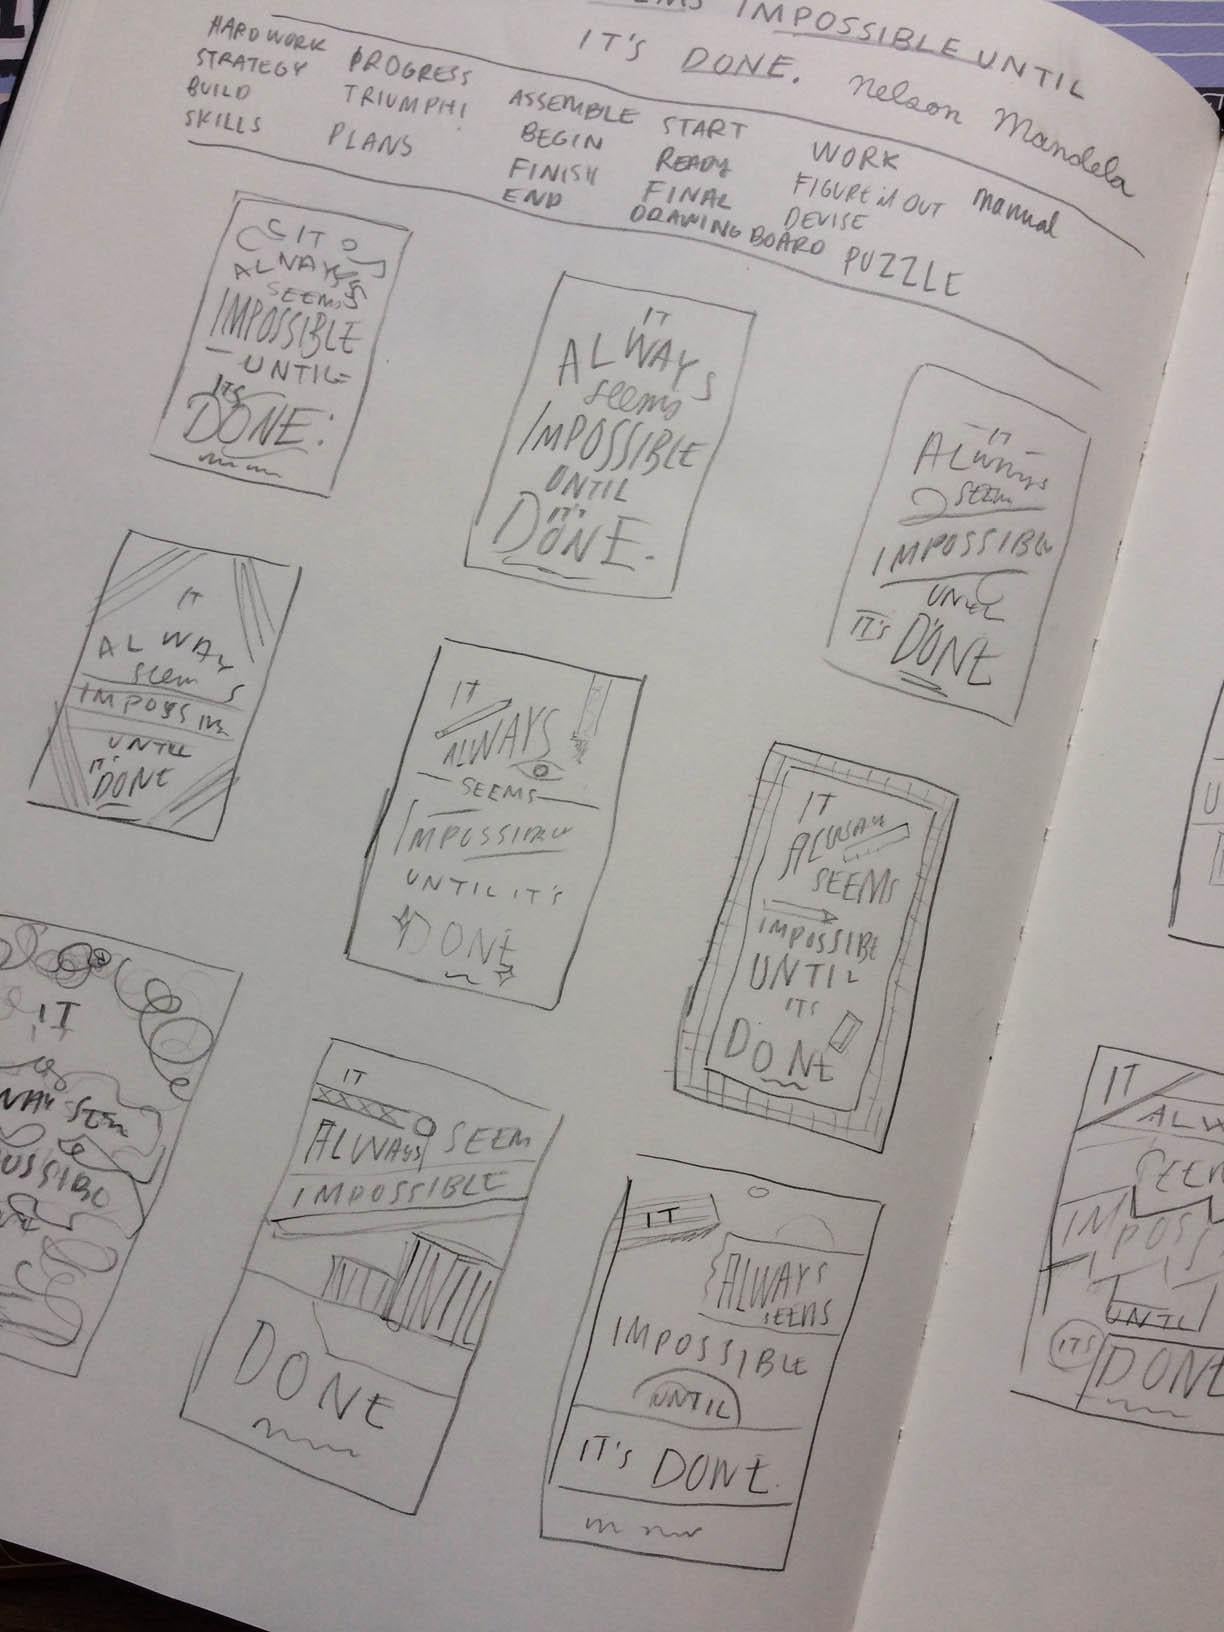 IMPOSSIBLE UNTIL
IT'S DONE. Nelson Mandela
HARDWORK
STRATEGY
BUILD
SKILLS
PROGRESS
TRIUMPH!
PLANS
ASSEMBLE
BEGIN
FINISH
END
START
READY
FINAL
DRAWING BOARD
WORK
FIGURE it OUT
DEVISE
PUZZLE
manual
IT
ALWAYS
SEEMS
IMPOSSIBLE
UNTIL
ITS
DONE.
IT
ALWAYS
seems
IMPOSSIBLE
UNTIL
IT'S
DONE.
IT
ALWAYS
SEEM
IMPOSSIBLE
UNTIL
IT'S DONE
IT
ALWAYS
seems
UNTIL
IT'S
DONE
IT
ALWAYS
SEEMS
IMPOSSIBLE
UNTIL IT'S
DONE
IT
SEEMS
IMPOSSIBLE
UNTIL
ITS
DONE
IT
SEEM
IT
ALWAYS SEEM
IMPOSSIBLE
UNTIL
DONE
IT
ALWAYS
SEEMS
IMPOSSIBLE
UNTIL
IT'S DONE.
IT
ALW
SEEM
IMPOSS
UNTIL
ITS DONE